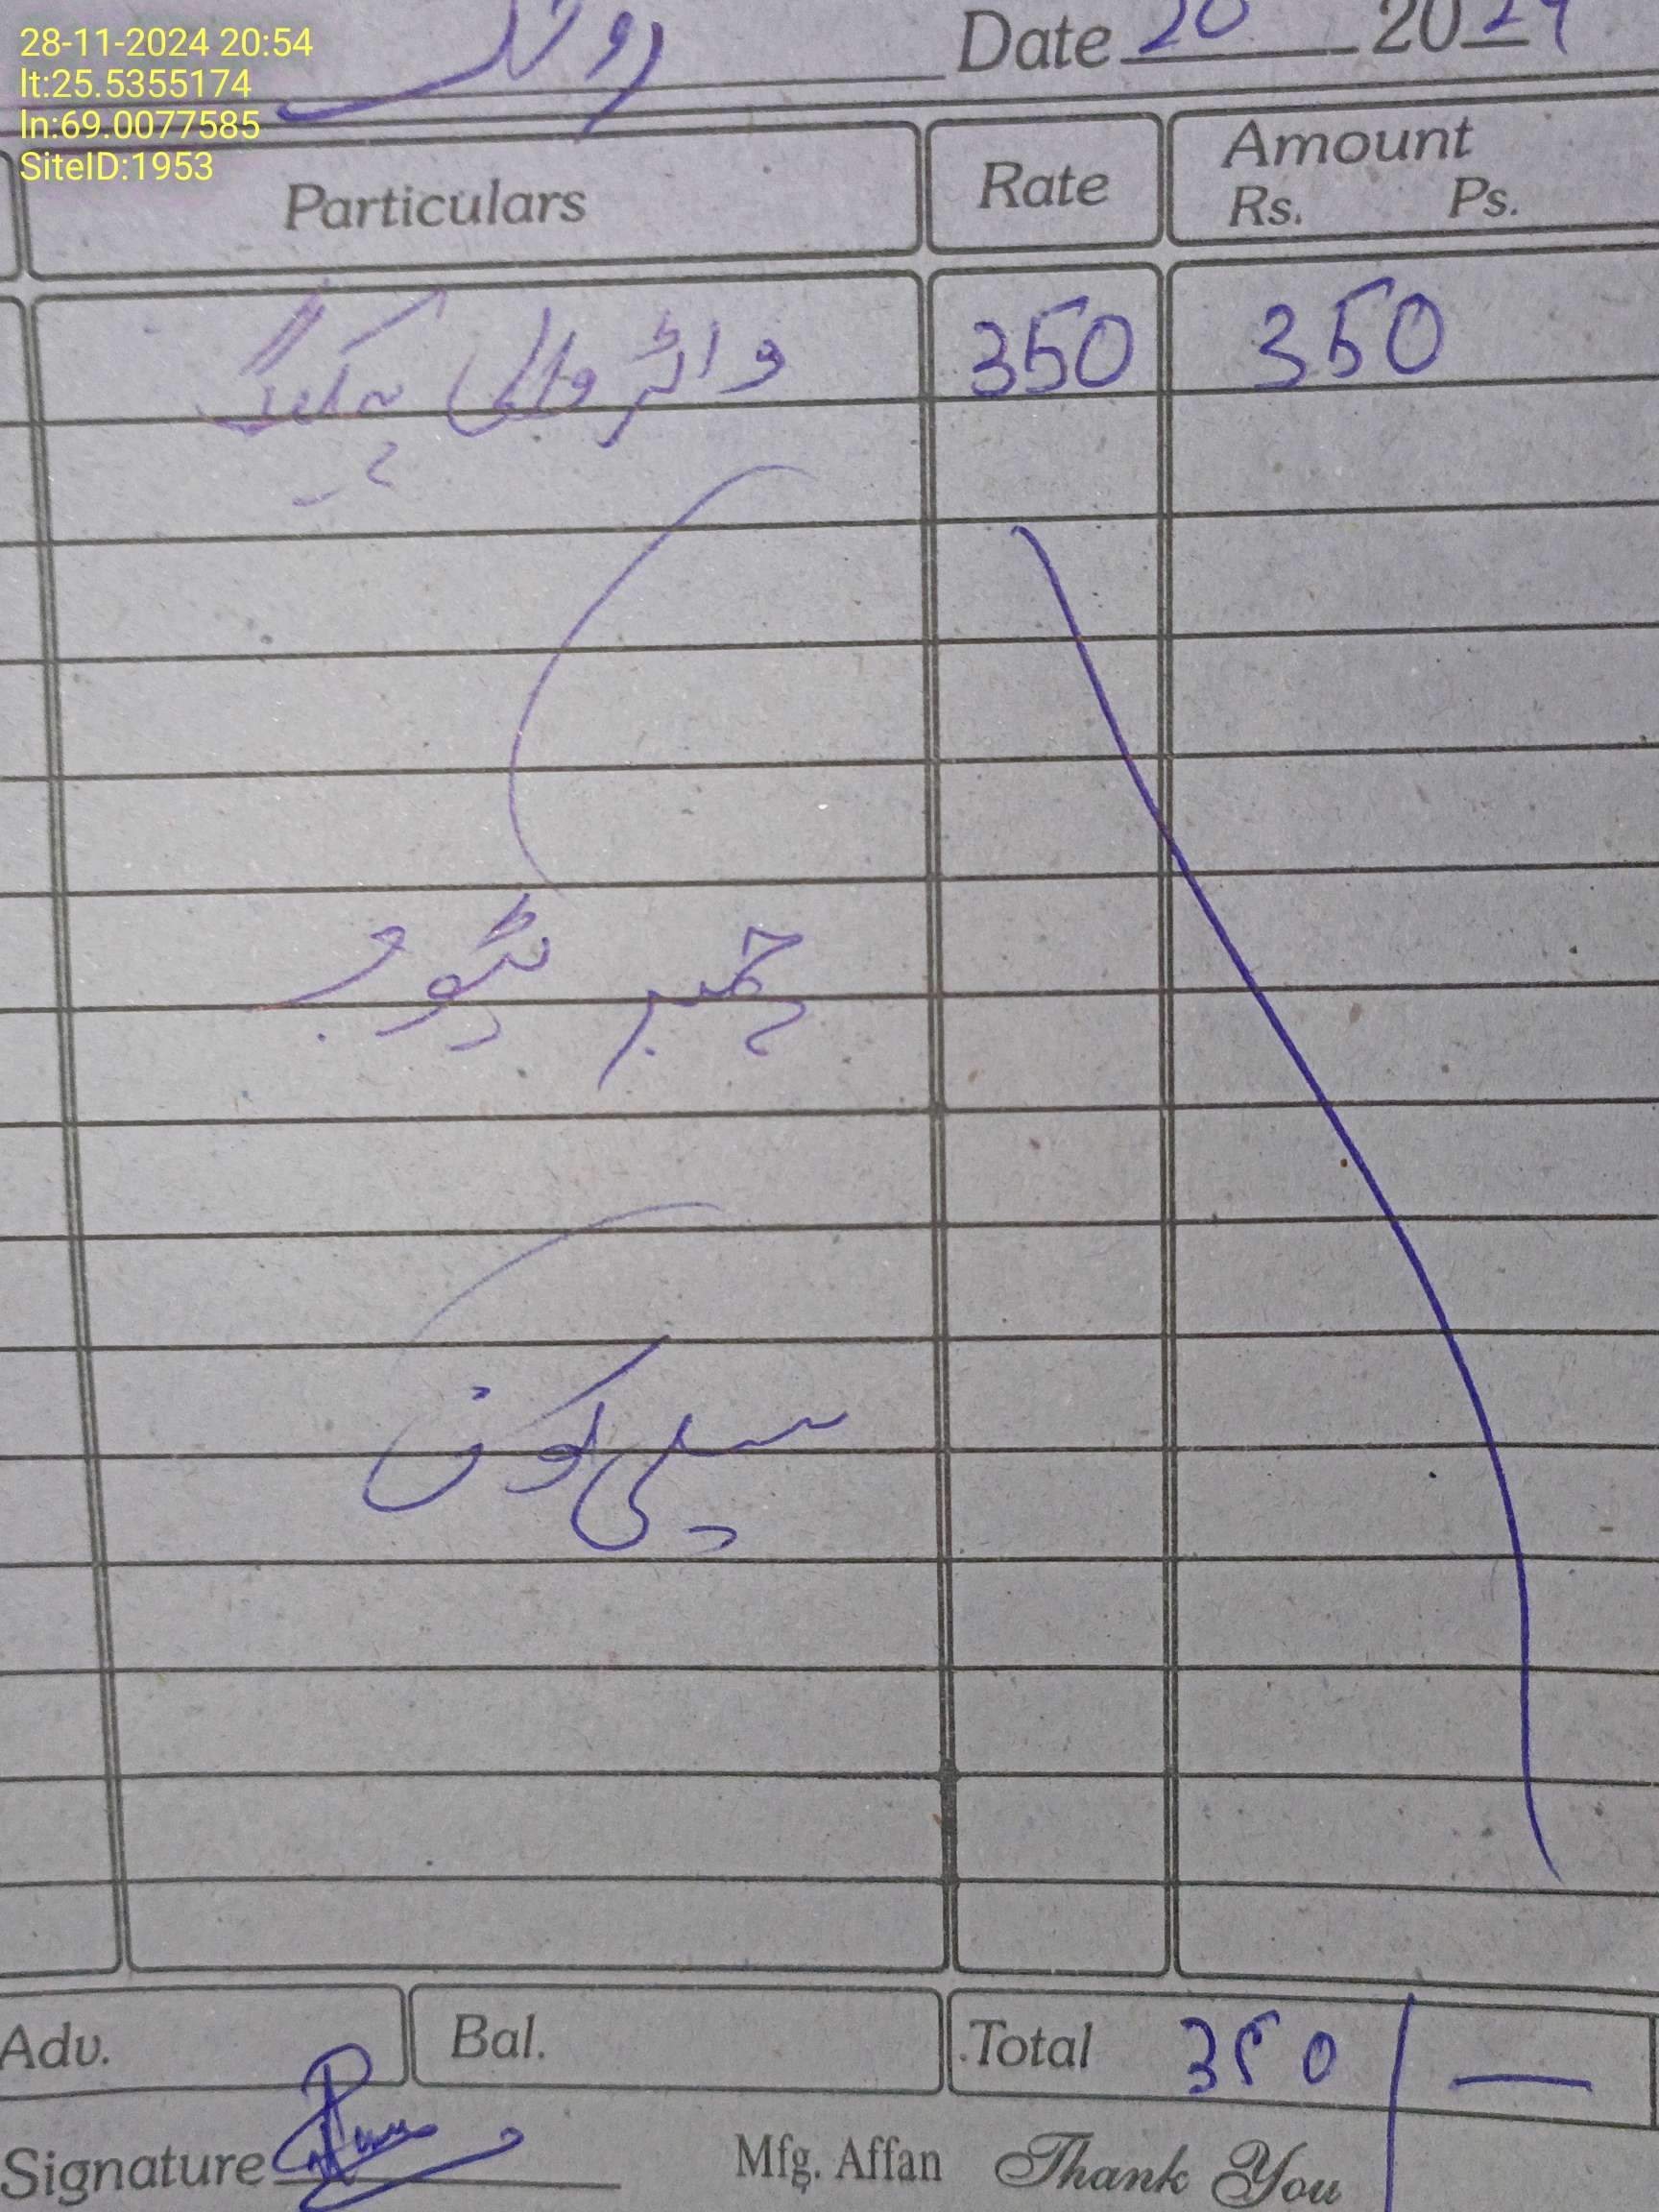 28-11-2024 20:54
lt:25.5355174
ln:69.0077585
SiteID:1953
Date 20 2024
Particulars Rate Amount
Rs. Ps.
واٹر والی پیکینگ 350 350
چمبر ٹیوب
سیلی کون
Adv. Bal. Total 350/—
Signature Mfg. Affan Thank You